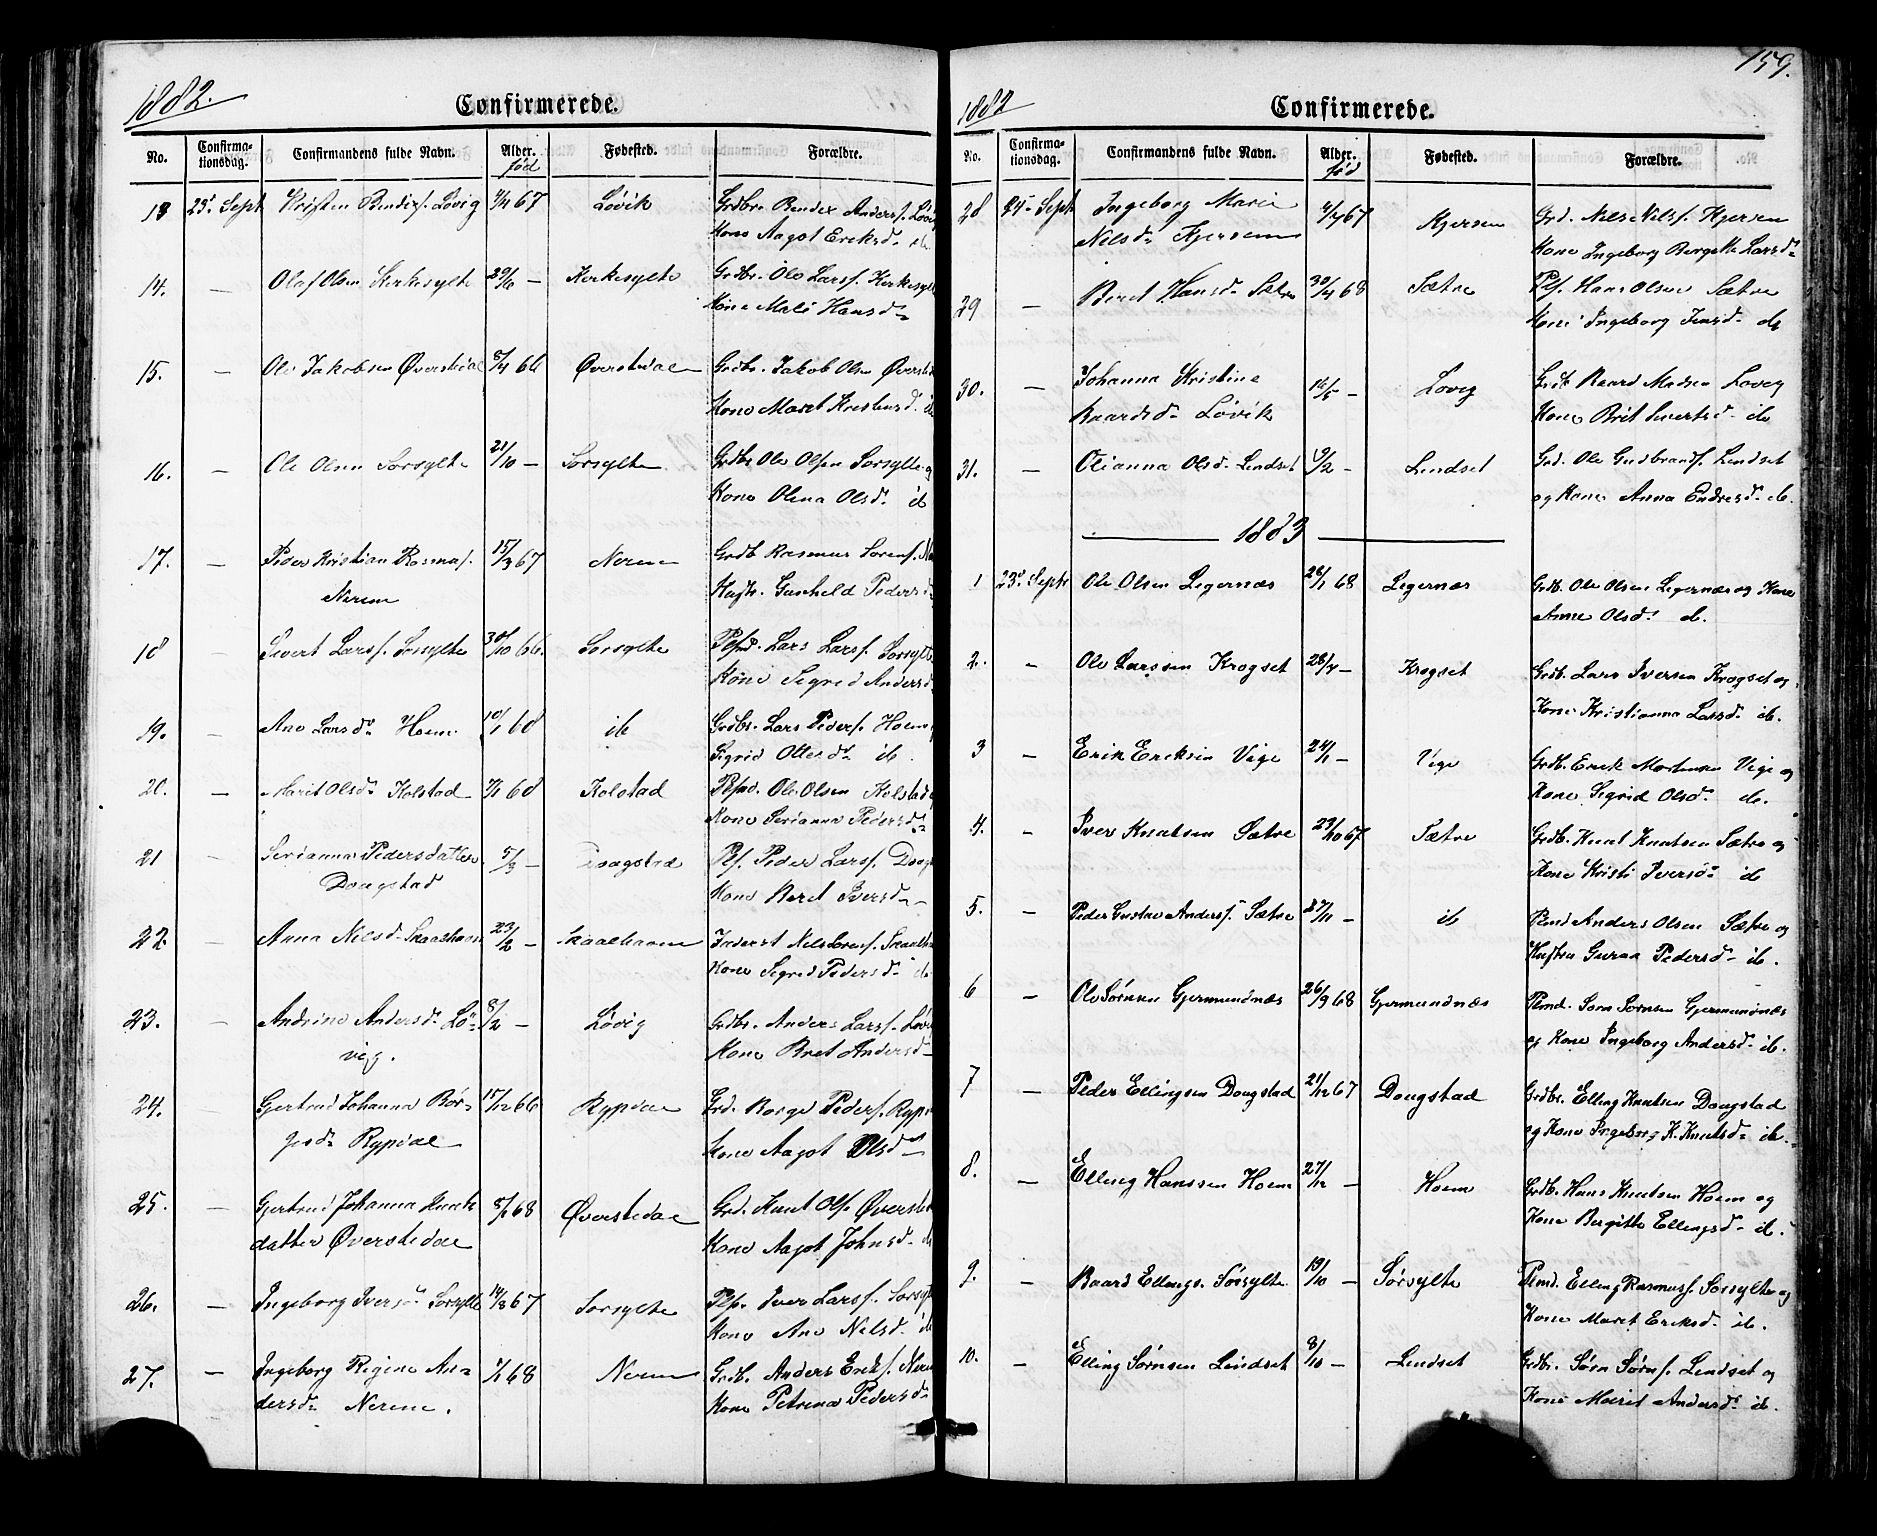 1882.
Confirmerede.
No. Confirma-tionsdag. Confirmandens fulde Navn. Alder. Fødested. Forældre.
fød
13 23d Sept Kristen Bendixs. Løvig 67 Løvik Grdbr. Bendix Anders. Løvig
Kone Aagot Eriksd. ib
14. — Olaf Olsen Kirkesylte 29/6 — Kirkesylte Grdbr. Ole Larss. Kirkesylt
Kone Mali Hansd.
15. — Ole Jakobsen Øverstedal 5/4 66 Øverstedal Grdbr. Jakob Olsen Øversted
Kone Maret ib
16. — Ole Olsen Sorsylte 21/10 — Sorsylte Grdbr. Ole Olsen Sorsylte og
Kone Olena Olsd. ib
17. — Peder Kristian Rasmus. 15/3 67 Nerem Grdb. Rasmus Sorens.
Nerem Hustr. Gunhild Pedersd
18 — Sivert Larss. Sorsylte 30/10 66. Sorsylte Plsmd. Lars Larss. Sorsylt
Kone Sigrid Andersd
19. — Ane Larsd. Hoem 10/1 68 ib Grdbr. Lars Peders. Hoem
Sigrid Ottersd. ib.
20. — Marit Olsd. Kolstad 68 Kolstad Plsmd. Ole Olsen Kolstad
Kone Serianna Pedersd.
21 — Serianna Pedersdatter 5/3 — Dougstad Pls. Peder Larss. Doug
Dougstad Kone Beret Iversd.
22. — Anna Nilsd. Skaalhavn 23/2 — Skaalhavn Inderst Nils Sorens. Skaalh
Kone Sigrid Pedersd. ib
23. — Andrine Andersd. Lø- 8/2 — Løvig Grdbr. Anders Larss. Løvi
vig. Kone Bret Andersd.
24. — Gjertrud Johanna Bør- 17/12 66 Rypdal Grd. Børge Peders. Ryp
gesd. Rypdal Kone Aagot Olsd.
25. — Gjertrud Johanna Knuts 68 Øverstedal Grd. Knut Ols. Øversted
datter Øverstedal Kone Aagot Johnsd. ib
26. — Ingeborg Iversd. Sorsylte 14/3 67 Sorsylte Pls. Iver Larss. Sorsylt
Kone Ane Nilsd. ib
27. — Ingeborg Regine An- 68 Nerem Grdb. Anders Eriks. Nerem
dersd. Nerem. Kone Petrina Pedersd.
159.
1882
Confirmerede.
No. Confirma-tionsdag. Confirmandens fulde Navn. Alder. Fødested. Forældre.
fød
28 24. Sept Ingeborg Marie 67 Kjersem Grd. Nils Nilss. Kjersem
Nilsd. Kjersem Kone Ingeborg Bergitte Larsd.
29 — Beret Hansd. Sætre 30/4 68 Sætre Pls. Hans Olsen Sætre
Kone Ingeborg Jensd. ib
30. — Johanna Kristine 16/5 — Lovig Grdb. Baard Madsen Lovig
Baardsd. Løvik Kone Brit Sivertsd. ib
31. — Olianna Olsd. Lindset 9/2 — Lindset Grd. Ole Gudbrands. Lindset
og Kone Anna Endresd. ib.
1883
1 23d Septr Ole Olsen Legernæs 28/1 68 Legernæs Grdb. Ole Olsen Legernæs og Kone
Anne Olsd. ib.
2. — Ole Larssen Krogset — Krogset Grdb. Lars Iversen Krogset og
Kone Kristianna Larsd. ib.
3 — Erik Eriksen Vige 24/1 — Vige Grdb. Erik Mortensen Vige og
Kone Sigrid Olsd. ib.
4. — Iver Knutsen Sætre 23/10 67 Sætre Grdb. Knut Knutsen Sætre og
Kone Kristi Iversd. ib
5. — Peder Gustav Anders. Sætre 27/11 — ib Plmd Anders Olsen Sætre og
Hustru Guraa Pedersd. ib.
6 — Ole Sørnsen Gjermundnæs 26/9 68 Gjermundnæs Plmd. Sørn Sørnsen Gjermundnæs
og Kone Ingeborg Andersd. ib.
7 — Peder Ellingsen Dougstad 21/12 67 Dougstad Grdbr. Elling Knutsen Dougstad
og Kone Ingeborg K. Knutsd. ib.
8. — Elling Hanssen Hoem 27/12 — Hoem Grdb. Hans Knutsen Hoem og
Kone Bergitte Ellingsd. ib.
9. — Baard Ellings. Sørsylte 19/10 — Sørsylte Plmd. Elling Rasmuss. Sorsylte og
Kone Maret Eriksd. ib.
10. — Elling Sørnsen Lindset 8/10 — Lindset Grdbr. Sørn Sørns. Lindset og
Kone Marit Andersd. ib.